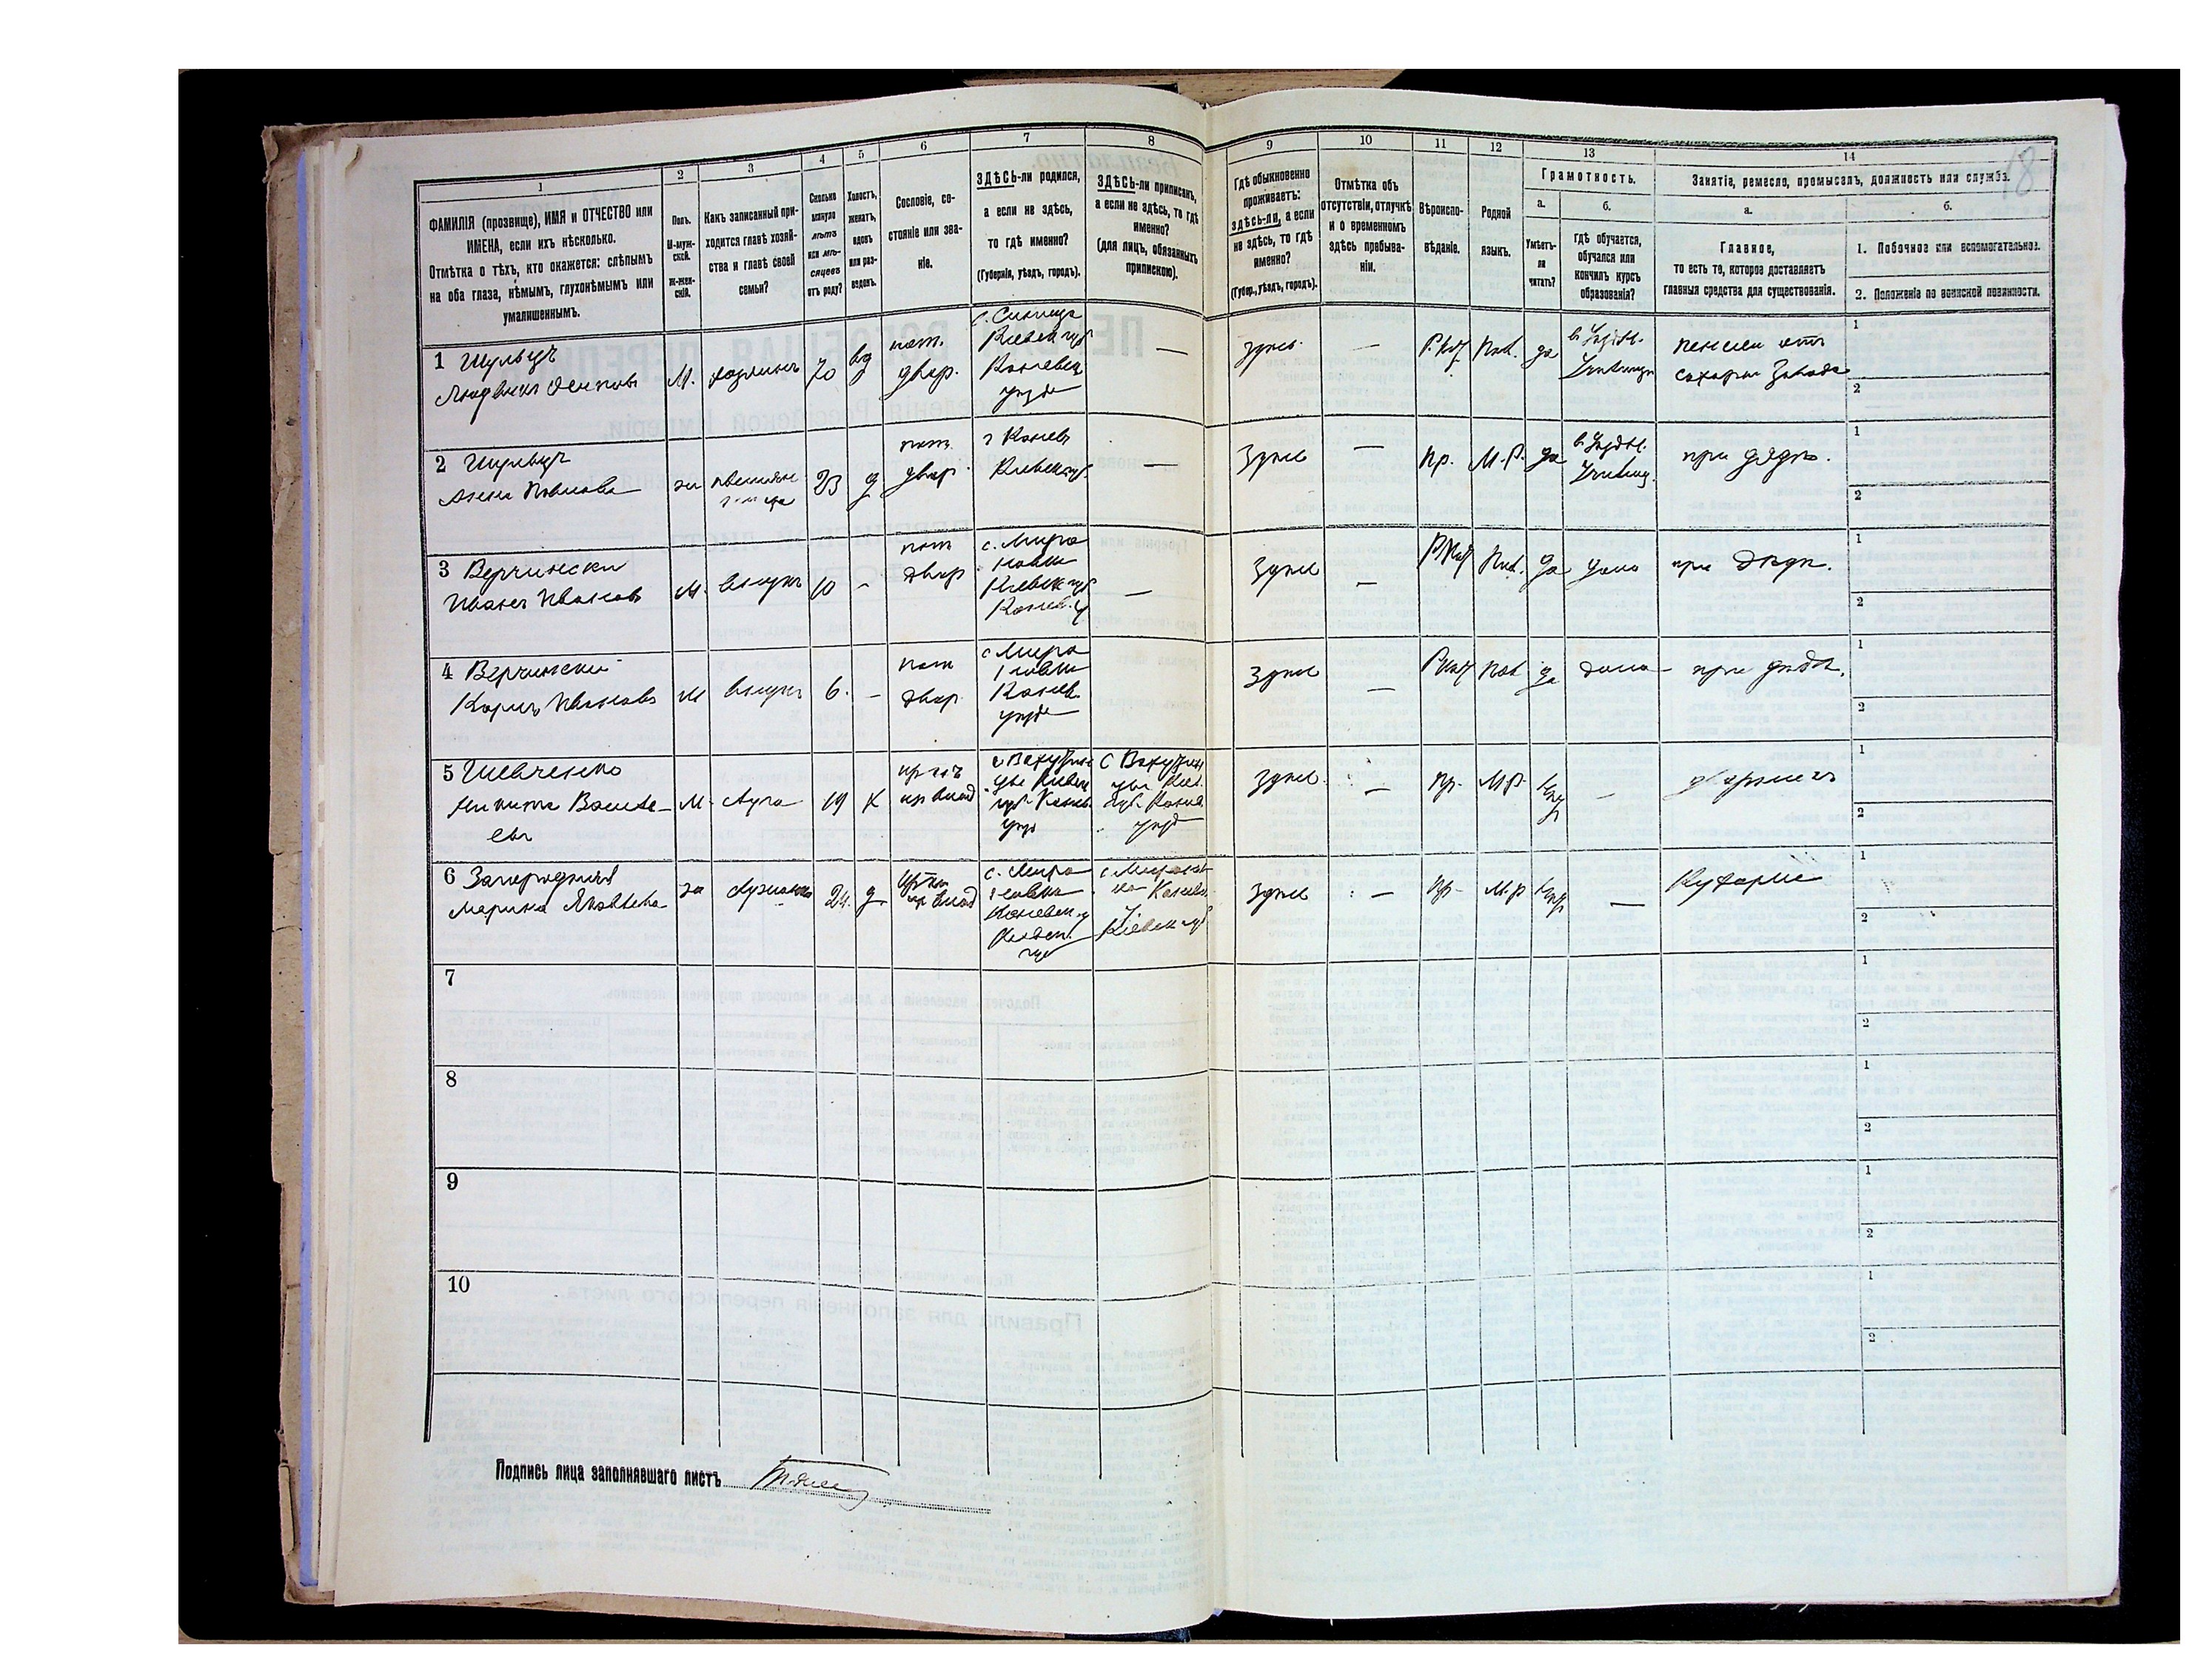 18
1
2
3
4
5
6
7
8
9
10
11
12
13
14
ФАМИЛІЯ (прозвище), ИМЯ и ОТЧЕСТВО или
ИМЕНА, если ихъ нѣсколько.
Отмѣтка о тѣхъ, кто окажется: слѣпымъ
на оба глаза, нѣмымъ, глухонѣмымъ или
умалишеннымъ.
Полъ.
М-муж-
ской.
Ж-жен-
скій.
Какъ записанный при-
ходится главѣ хозяй-
ства и главѣ своей
семьи?
Сколько
минуло
лѣтъ
или мѣ-
сяцевъ
отъ роду?
Холостъ,
женатъ,
вдовъ
или раз-
веденъ.
Сословіе, со-
стояніе или зва-
ніе.
ЗДѢСЬ-ли родился,
а если не здѣсь,
то гдѣ именно?
(Губернія, уѣздъ, городъ).
ЗДѢСЬ-ли приписанъ,
а если не здѣсь, то гдѣ
именно?
(для лицъ, обязанныхъ
припискою).
Гдѣ обыкновенно
проживаетъ:
здѣсь-ли, а если
не здѣсь, то гдѣ
именно?
(Губер., уѣздъ, городъ).
Отмѣтка объ
отсутствіи, отлучкѣ
и о временномъ
здѣсь пребыва-
ніи.
Вѣроиспо-
вѣданіе.
Родной
языкъ.
Грамотность.
а.
Умѣетъ-
ли
читать?
б.
гдѣ обучается,
обучался или
кончилъ курсъ
образованія?
Занятіе, ремесло, промыселъ, должность или служба.
а.
Главное,
то есть то, которое доставляетъ
главныя средства для существованія.
б.
1. Побочное или вспомогательное.
2. Положеніе по воинской повинности.
1 Шульцъ
М.
хозяинъ
70
вд
пот.
двор.
Кіевск губ
Каневск
уѣзд
—
здѣсь
—
Р.Кат
Пол.
да
1
2
2 Шульцъ
Анна Павлова
23
д
пот.
двор.
г Канев
Кіевск губ.
—
Здѣсь
—
пр.
М.-Р.
да
при дядѣ.
1
2
3 Верчински
Иванъ Ивановъ
М.
внукъ
10
-
пот
двор
с. Миро
новка
Кіевск губ
Канев. у
—
Здѣсь
—
Р Кат
Пол.
да
дома
при дѣдѣ.
1
2
4 Верчински
Карлъ Ивановъ
М
внукъ
6.
-
пот
двор.
с Миро
новка
Канев.
уѣзд
Здѣсь
—
Р Кат
Пол
да
дома
при дѣдѣ.
1
2
5 Шевченко
Никита Василь-
евъ
М.
слуга
19
Х
Здѣсь
—
пр.
М.Р.
—
1
2
6 Загородняя
Марина Яковлева
24.
д
с. Миро
новка
Здѣсь
—
пр.
М.Р
—
Кухарка
1
2
7
1
2
8
1
2
9
1
2
10
1
2
Подпись лица заполнявшаго листъ